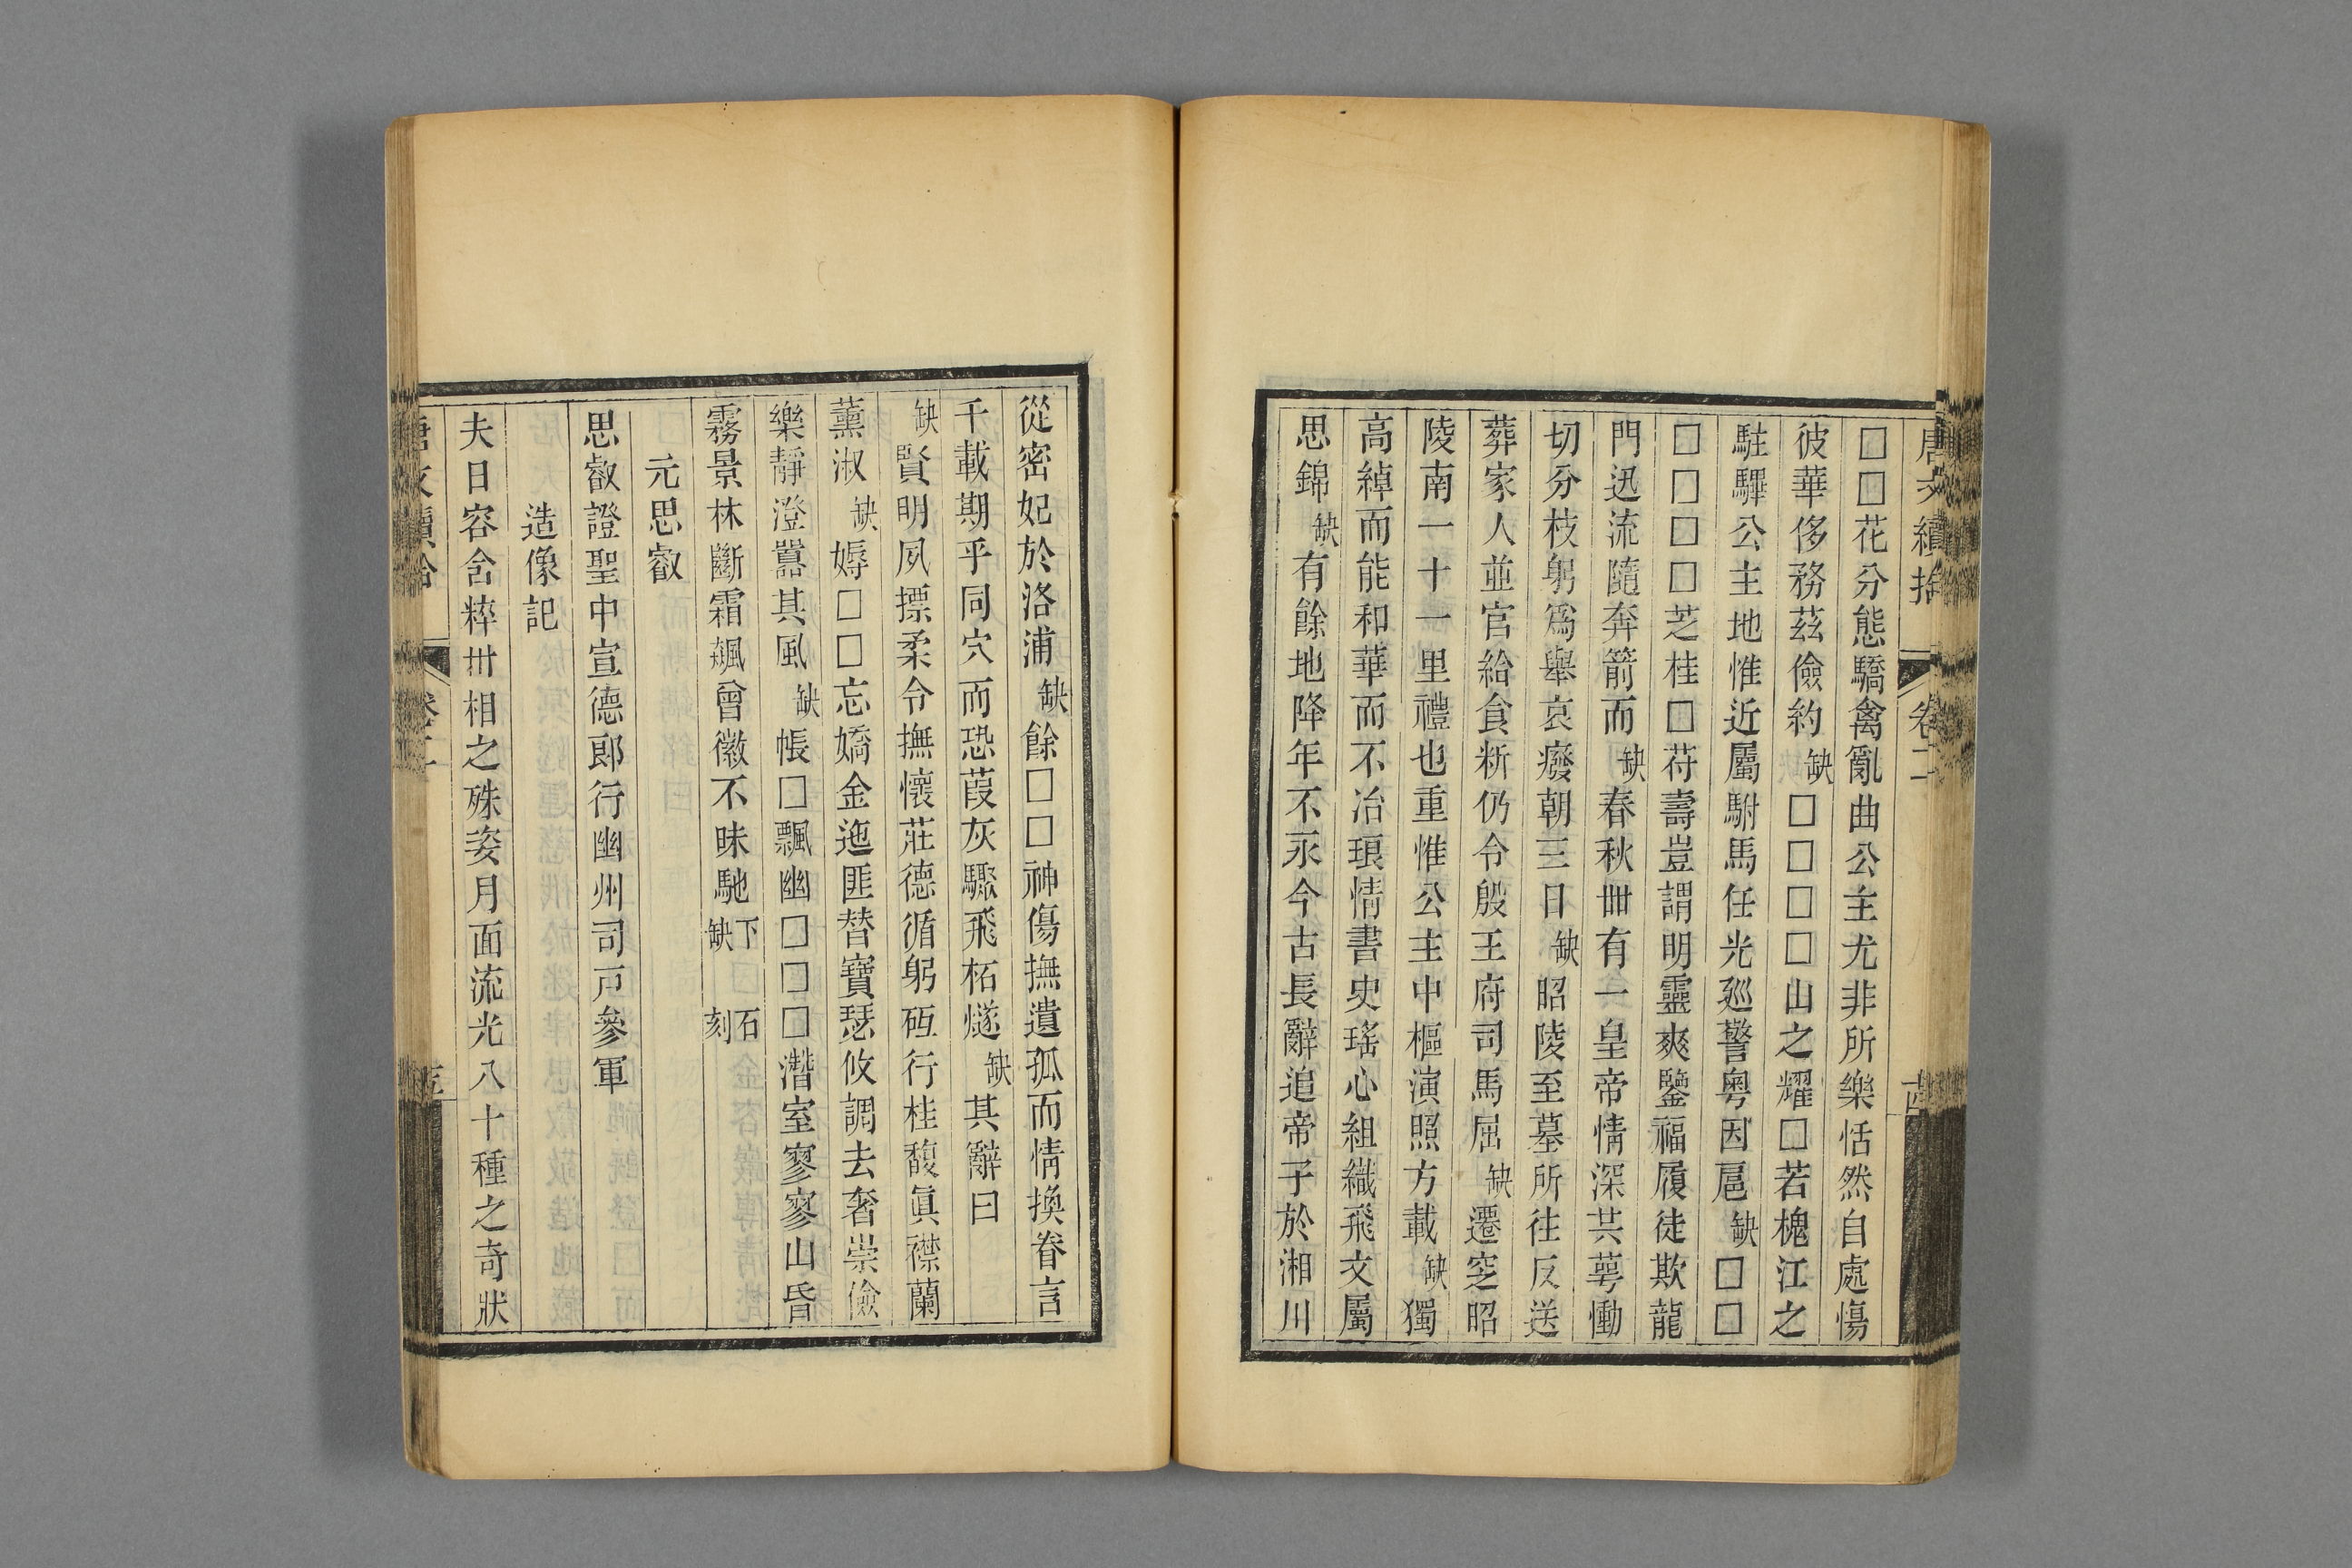 唐文續拾 卷二 十四
□□花分態驕禽亂曲公主尤非所樂恬然自處慯
彼華侈務茲儉約缺□□□□山之耀□若槐江之
駐驛公主地惟近屬駙馬任光廵警粵因扈缺□□
□□□□芝桂□苻壽豈謂明靈爽鑒福履徒欺龍
門迅流隨奔箭而缺春秋卌有一皇帝情深共萼慟
切分枝躬爲舉哀癈朝三日缺昭陵至墓所往反送
葬家人並官給食新仍令殷王府司馬屈缺遷窆昭
陵南一十一里禮也重惟公主中樞演照方載缺獨
高綽而能和華而不冶琅情書史瑤心組織飛文屬
思錦缺有餘地降年不永今古長辭追帝子於湘川
從密妃於洛浦缺餘□□神傷撫遺孤而情換眷言
千載期乎同穴而恐葭灰驟飛柘燧缺其辭曰
缺賢明夙摽柔令撫懷莊德循躬砥行桂馥眞襟蘭
薰淑缺媷□□忘嬌金迤匪替寶瑟攸調去奢崇儉
樂靜澄囂其風缺帳□飄幽□□□潛室寥寥山昏
霧景林斷霜飆曾徽不昧馳下缺 石刻
元思叡
思叡證聖中宣德郎行幽州司戸參軍
造像記
夫日容含粹卅相之殊姿月面流光八十種之奇狀
唐文續拾 卷二